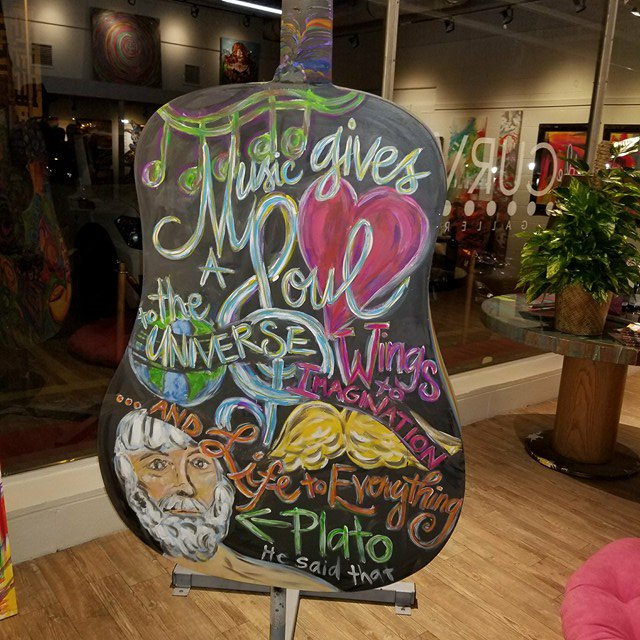 Music gives
A Soul
to the
UNIVERSE
Wings
to
IMAGINATION
...AND
Life to Everything
<-Plato
He said that
CURV
GALLER